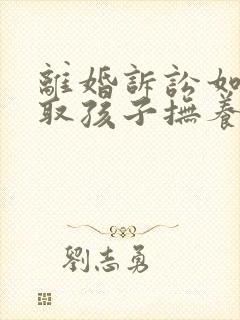 離婚訴訟如
取孩子撫養
劉志勇